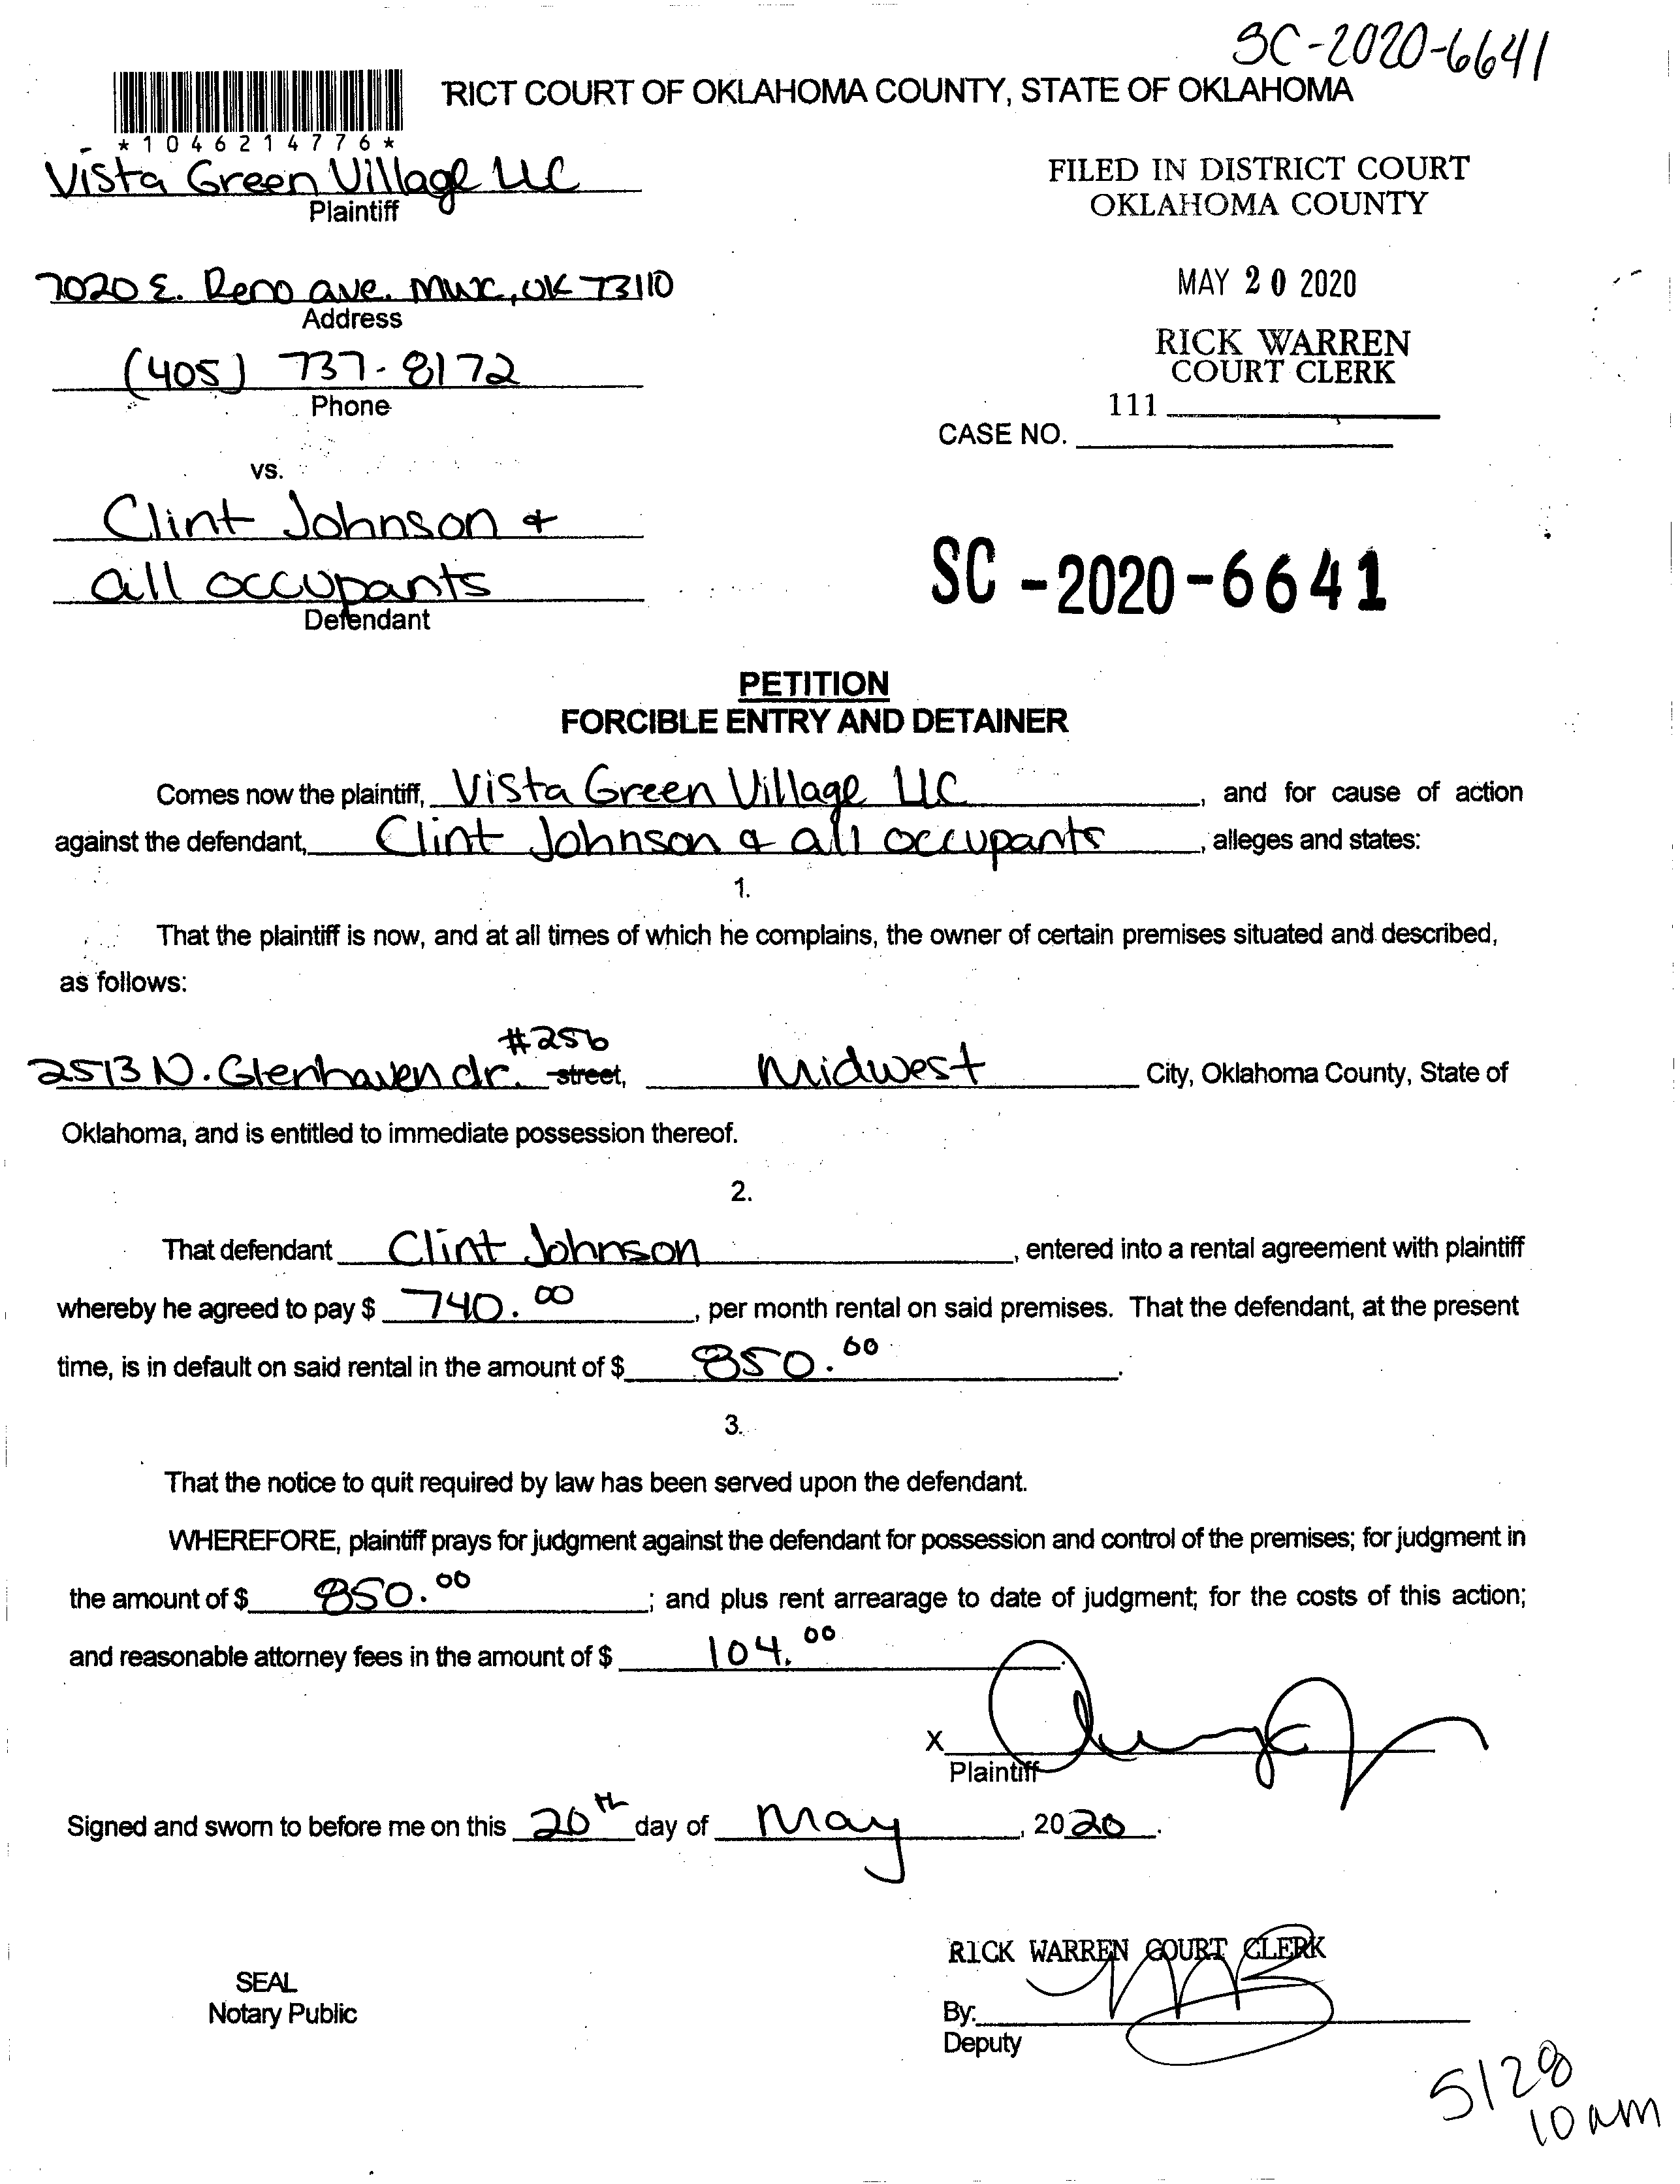 SC-2020-6641
RICT COURT OF OKLAHOMA COUNTY, STATE OF OKLAHOMA
*1046214776*
Vista Green Village LLC
Plaintiff
FILED IN DISTRICT COURT
OKLAHOMA COUNTY
7020 E. Reno ave. MWC, OK 73110
Address
MAY 20 2020
(405) 737-8172
Phone
RICK WARREN
COURT CLERK
111
CASE NO.
vs.
Clint Johnson &
all occupants
Defendant
SC-2020-6641
PETITION
FORCIBLE ENTRY AND DETAINER
Comes now the plaintiff, Vista Green Village LLC, and for cause of action
against the defendant, Clint Johnson & all occupants, alleges and states:
1.
That the plaintiff is now, and at all times of which he complains, the owner of certain premises situated and described,
as follows:
#256
2513 N. Glenhaven dr. street, Midwest City, Oklahoma County, State of
Oklahoma, and is entitled to immediate possession thereof.
2.
That defendant Clint Johnson, entered into a rental agreement with plaintiff
whereby he agreed to pay $ 740.00, per month rental on said premises. That the defendant, at the present
time, is in default on said rental in the amount of $ 850.00.
3.
That the notice to quit required by law has been served upon the defendant.
WHEREFORE, plaintiff prays for judgment against the defendant for possession and control of the premises; for judgment in
the amount of $ 850.00; and plus rent arrearage to date of judgment; for the costs of this action;
and reasonable attorney fees in the amount of $ 104.00.
X
Plaintiff
Signed and sworn to before me on this 20th day of May, 2020.
RICK WARREN COURT CLERK
SEAL
Notary Public
By:
Deputy
5/28
10 am